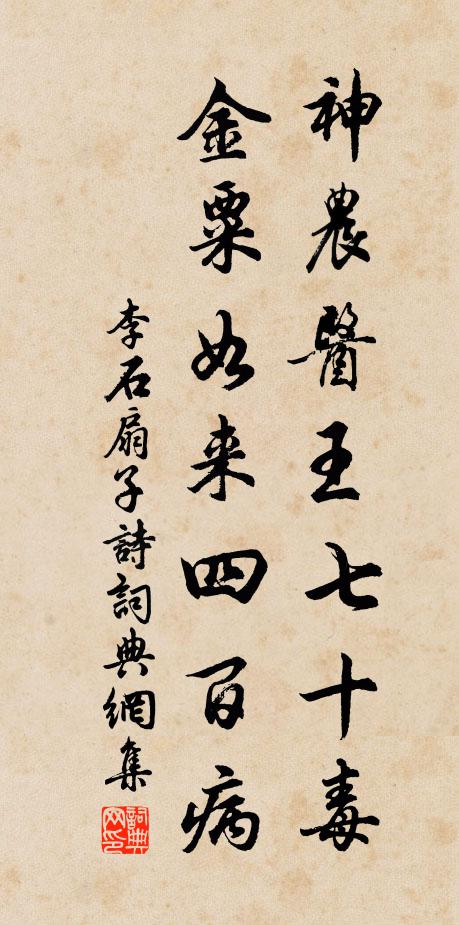 神農醫王七十毒
金粟如来四百病
李石扇子詩詞典網集
詞典网印